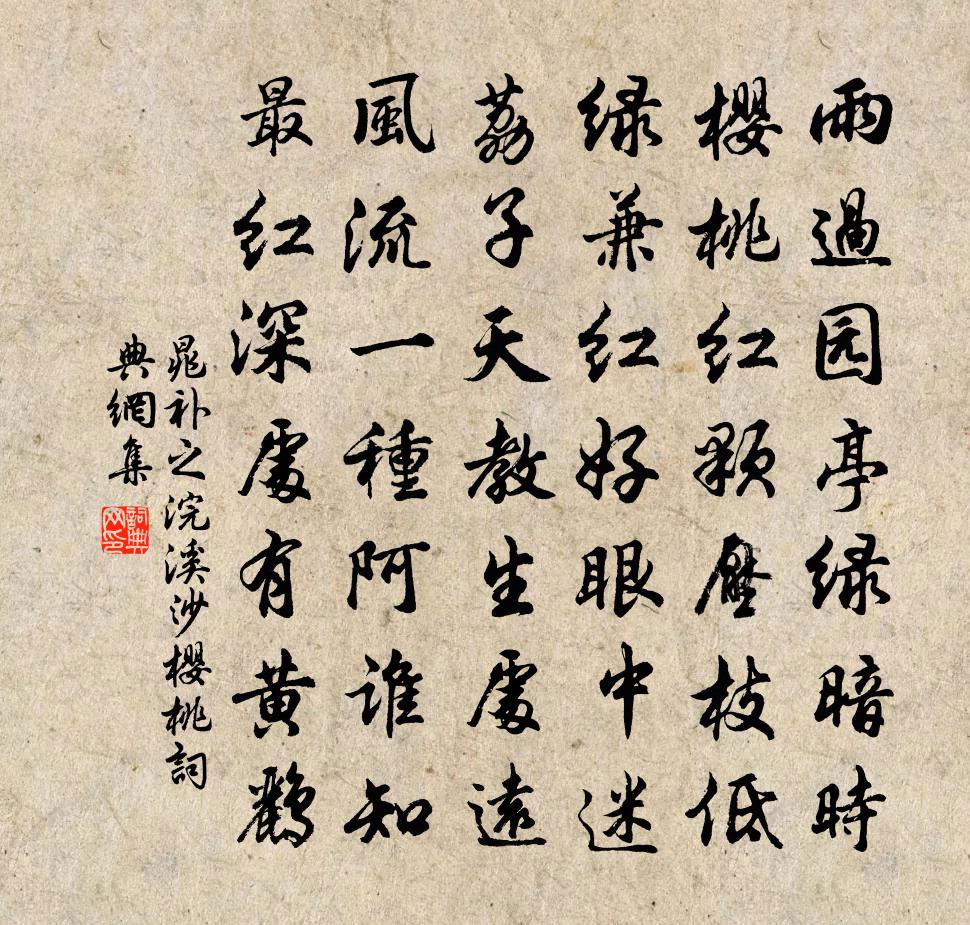 雨過园亭绿暗時
櫻桃红顆壓枝低
绿兼红好眼中迷
荔子天教生處遠
風流一種阿誰知
最红深處有黄鸝
晁补之浣溪沙櫻桃詞
典網集
詞典网印